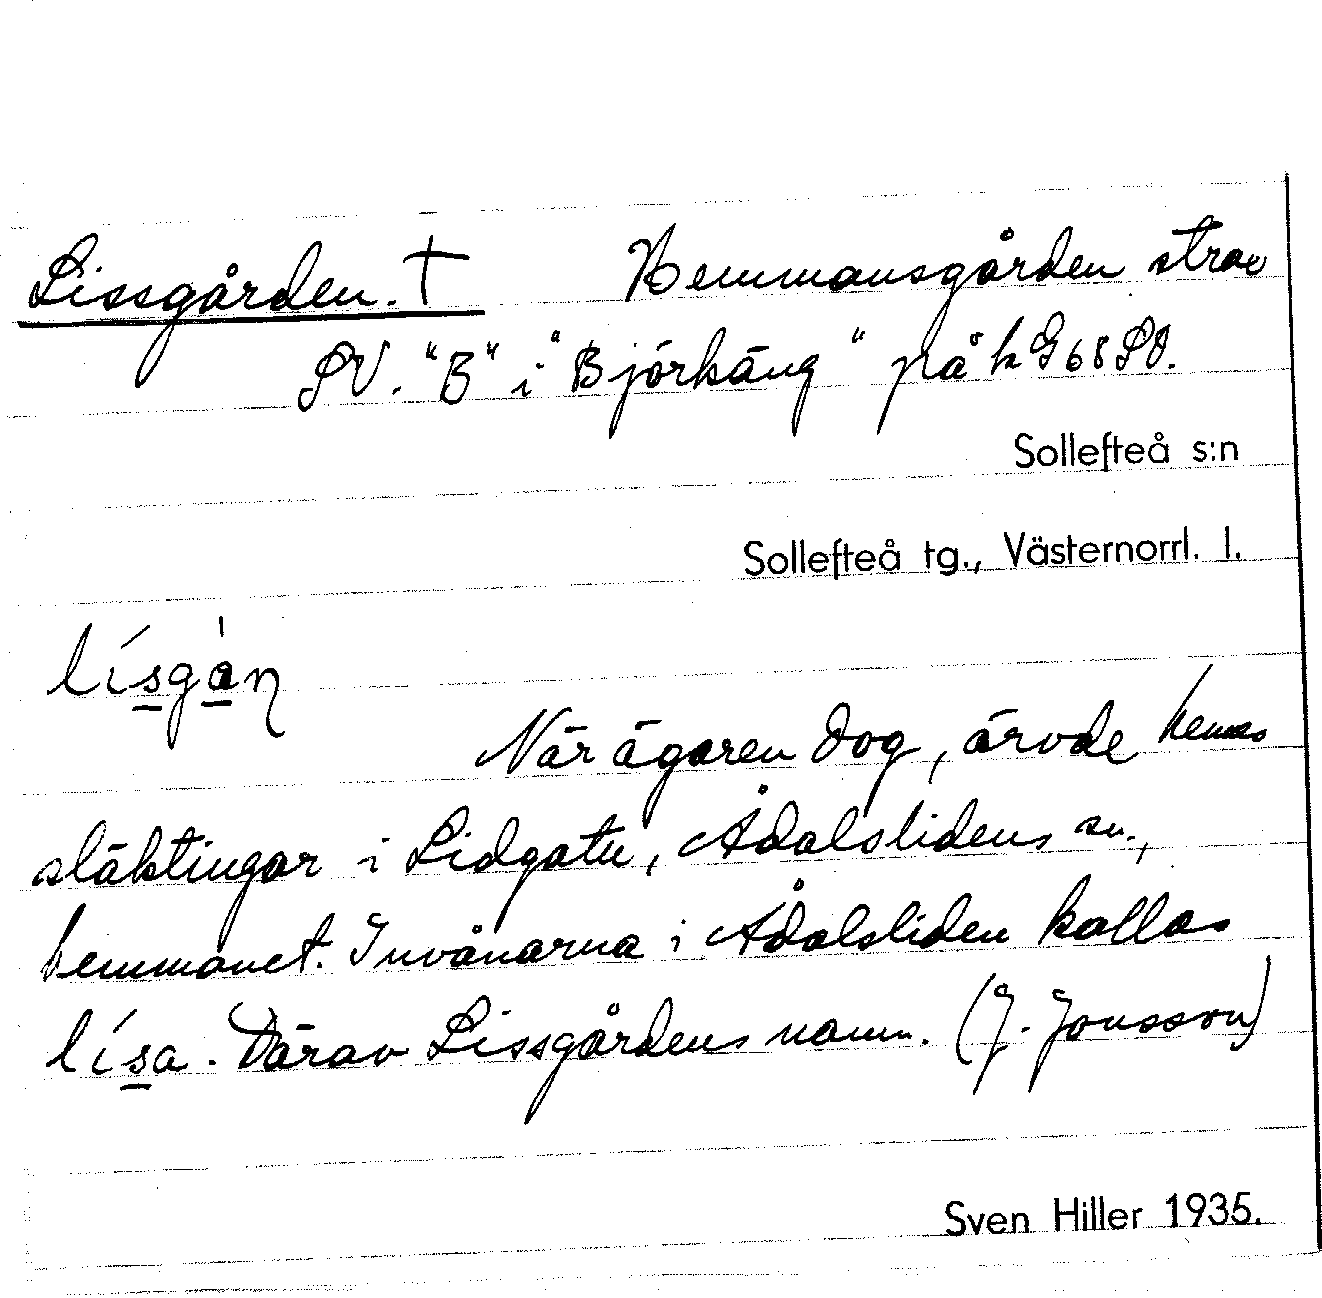 Lissgården. † Hemmansgården strax
SV. "B" i "Björkäng" på k G68SO.
Sollefteå s:n
Sollefteå tg., Västernorrl. l.
lísgàn̩
När ägaren dog, ärvde hennes
släktingar i Lidgatu, Ådalslidens sn.,
hemmanet. Invånarna i Ådalsliden kallas
lísa. Därav Lissgårdens namn. (J. Jonsson)
Sven Hiller 1935.